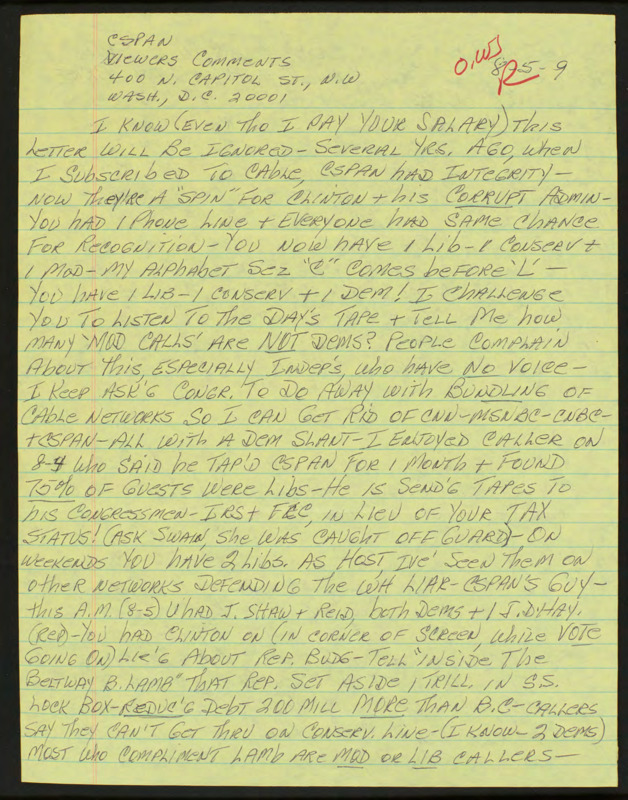 CSPAN
VIEWERS COMMENTS
400 N. CAPITOL ST., N.W
WASH., D.C. 20001
8-5-9
I KNOW (EVEN THO I PAY YOUR SALARY) THIS
LETTER WILL BE IGNORED - SEVERAL YRS. AGO, WHEN
I SUBSCRIBED TO CABLE, CSPAN HAD INTEGRITY -
NOW THEY'RE A "SPIN" FOR CLINTON + HIS CORRUPT ADMIN -
YOU HAD 1 PHONE LINE + EVERYONE HAD SAME CHANCE
FOR RECOGNITION - YOU NOW HAVE 1 LIB - 1 CONSERV +
1 MOD - MY ALPHABET SEZ "C" COMES BEFORE 'L' -
YOU HAVE 1 LIB - 1 CONSERV + 1 DEM! I CHALLENGE
YOU TO LISTEN TO THE DAY'S TAPE + TELL ME HOW
MANY 'MOD CALLS' ARE NOT DEMS? PEOPLE COMPLAIN
ABOUT THIS, ESPECIALLY INDEP'S, WHO HAVE NO VOICE -
I KEEP ASK'G CONGR. TO DO AWAY WITH BUNDLING OF
CABLE NETWORKS SO I CAN GET RID OF CNN - MSNBC - CNBC -
+ CSPAN - ALL WITH A DEM SLANT - I ENJOYED CALLER ON
8-4 WHO SAID HE TAP'D CSPAN FOR 1 MONTH + FOUND
75% OF GUESTS WERE LIBS - HE IS SEND'G TAPES TO
HIS CONGRESSMEN - IRS + FEC, IN LIEU OF YOUR TAX
STATUS! (ASK SWAIN, SHE WAS CAUGHT OFF GUARD) - ON
WEEKENDS YOU HAVE 2 LIBS. AS HOST IVE' SEEN THEM ON
OTHER NETWORKS DEFENDING THE WH LIAR - CSPAN'S GUY -
THIS A.M. (8-5) U HAD J. SHAW + REID, BOTH DEMS + 1 J.D. HAY.
(REP) - YOU HAD CLINTON ON (IN CORNER OF SCREEN, WHILE VOTE
GOING ON) LIE'G ABOUT REP. BUDG - TELL "INSIDE THE
BELTWAY B. LAMB" THAT REP. SET ASIDE 1 TRILL. IN S.S.
LOCK BOX - REDUC'G DEBT 200 MILL MORE THAN B.C - CALLERS
SAY THEY CAN'T GET THRU ON CONSERV. LINE - (I KNOW - 2 DEMS)
MOST WHO COMPLIMENT LAMB ARE MOD OR LIB CALLERS -